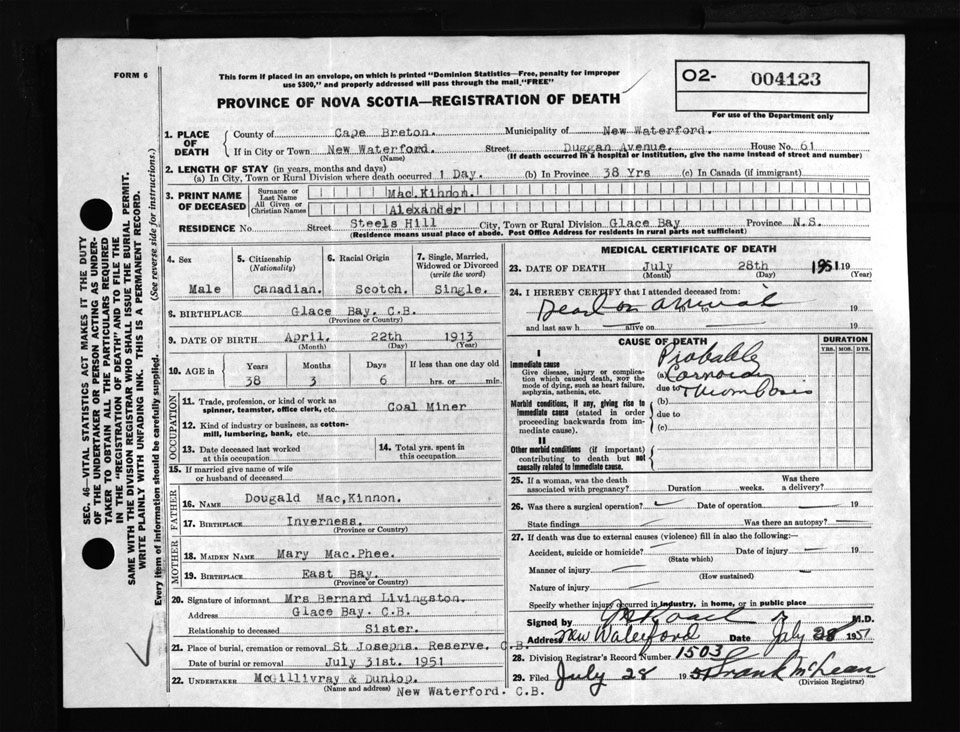 FORM 6
This form if placed in an envelope, on which is printed "Dominion Statistics—Free, penalty for improper
use $300," and properly addressed will pass through the mail "FREE"
O2- 004123
For use of the Department only
PROVINCE OF NOVA SCOTIA—REGISTRATION OF DEATH
1. PLACE OF DEATH
County of Cape Breton. Municipality of New Waterford.
If in City or Town New Waterford. Street Duggan Avenue. House No. 61
(Name) (If death occurred in a hospital or institution, give the name instead of street and number)
2. LENGTH OF STAY (in years, months and days)
(a) In City, Town or Rural Division where death occurred 1 Day. (b) In Province 38 Yrs (c) In Canada (if immigrant)
3. PRINT NAME OF DECEASED
Surname or Last Name Mac.Kinnon.
All Given or Christian Names Alexander
RESIDENCE No. Street Steels Hill City, Town or Rural Division Glace Bay Province N.S.
(Residence means usual place of abode. Post Office Address for residents in rural parts not sufficient)
4. Sex
Male
5. Citizenship
(Nationality)
Canadian.
6. Racial Origin
Scotch.
7. Single, Married,
Widowed or Divorced
(write the word)
Single.
8. BIRTHPLACE Glace Bay. C.B.
(Province or Country)
9. DATE OF BIRTH April. 22th 1913
(Month) (Day) (Year)
10. AGE in
Years Months Days If less than one day old
38 3 6 hrs. or min.
OCCUPATION
11. Trade, profession, or kind of work as
spinner, teamster, office clerk, etc. Coal Miner
12. Kind of industry or business, as cotton-
mill, lumbering, bank, etc.
13. Date deceased last worked
at this occupation
14. Total yrs. spent in
this occupation
15. If married give name of wife
or husband of deceased
FATHER
16. NAME Dougald Mac,Kinnon.
17. BIRTHPLACE Inverness.
(Province or Country)
MOTHER
18. MAIDEN NAME Mary Mac.Phee.
19. BIRTHPLACE East Bay.
(Province or Country)
20. Signature of informant Mrs Bernard Livingston.
Address Glace Bay. C.B.
Relationship to deceased Sister.
21. Place of burial, cremation or removal St Josephs. Reserve. C.B.
Date of burial or removal July 31st. 1951
22. UNDERTAKER McGillivray & Dunlop.
(Name and address) New Waterford. C.B.
MEDICAL CERTIFICATE OF DEATH
23. DATE OF DEATH July 28th 1951 19
(Month) (Day) (Year)
24. I HEREBY CERTIFY that I attended deceased from:
Dead on arrival 19 to 19
and last saw h alive on 19
CAUSE OF DEATH
DURATION
YRS. MOS. DYS.
I
Immediate cause
Give disease, injury or compli-
cation which caused death, NOT the
mode of dying, such as heart failure,
asphyxia, asthenia, etc.
Probable
(a) Coronary
due to Thrombosis
Morbid conditions, if any, giving rise to
immediate cause (stated in order
proceeding backwards from im-
mediate cause).
(b)
due to
(c)
II
Other morbid conditions (if important)
contributing to death but not
causally related to immediate cause.
25. If a woman, was the death
associated with pregnancy? Duration weeks. Was there
a delivery?
26. Was there a surgical operation? Date of operation 19
State findings Was there an autopsy?
27. If death was due to external causes (violence) fill in also the following:
Accident, suicide or homicide? Date of injury 19
(State which)
Manner of injury
(How sustained)
Nature of injury
Specify whether injury occurred in industry, in home, or in public place
Signed by M.D.
Address New Waterford Date July 28 1951
28. Division Registrar's Record Number 1503
29. Filed July 28 195 Frank McLean
(Division Registrar)
SEC. 46—VITAL STATISTICS ACT MAKES IT THE DUTY
OF THE UNDERTAKER OR PERSON ACTING AS UNDER-
TAKER TO OBTAIN ALL THE PARTICULARS REQUIRED
IN THE "REGISTRATION OF DEATH" AND TO FILE THE
SAME WITH THE DIVISION REGISTRAR WHO SHALL ISSUE THE BURIAL PERMIT.
WRITE PLAINLY WITH UNFADING INK. THIS IS A PERMANENT RECORD.
Every item of information should be carefully supplied. (See reverse side for instructions.)